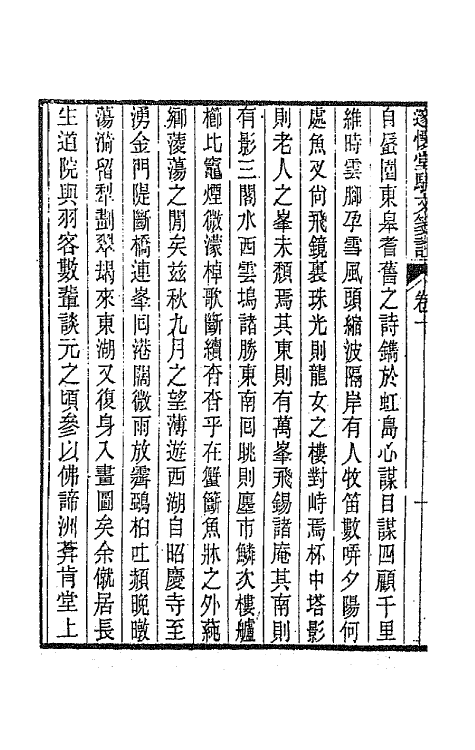 懷堂駢文箋註 卷一
自蜑園東皋耆舊之詩鐫於虹島心謀目謀四顧千里
維時雲腳孕雪風頭縮波隔岸有人牧笛數哢夕陽何
處魚叉尙飛鏡裏珠光則龍女之樓對峙焉杯中塔影
則老人之峯未頽焉其東則有萬峯飛錫諸庵其南則
有影三閣水西雲塢諸勝東南囘眺則廛市鱗次樓艫
櫛比竈煙微濛棹歌斷續杳杳乎在蟹籪魚牀之外蒓
鄉蓤蕩之閒矣茲秋九月之望薄遊西湖自昭慶寺至
湧金門隄斷橋連峯囘港闊微雨放霽鵶桕吐頳晚暾
蕩漪留犁劃翠朅來東湖又復身入畫圖矣余僦居長
生道院與羽客數輩談元之頃參以佛諦洲莽肯堂上